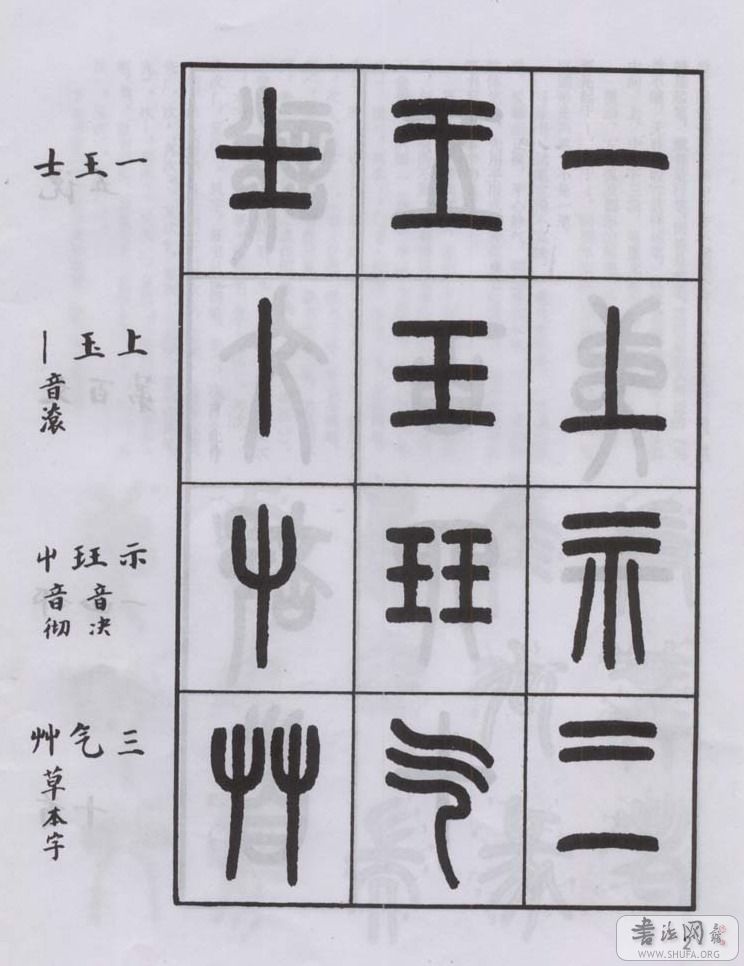 一上示三
王玉玨气
士丨屮艸
一
王
士
上
玉
丨音滚
示
玨音决
屮音彻
三
气
艸草本字
书法网
WWW.SHUFA.ORG